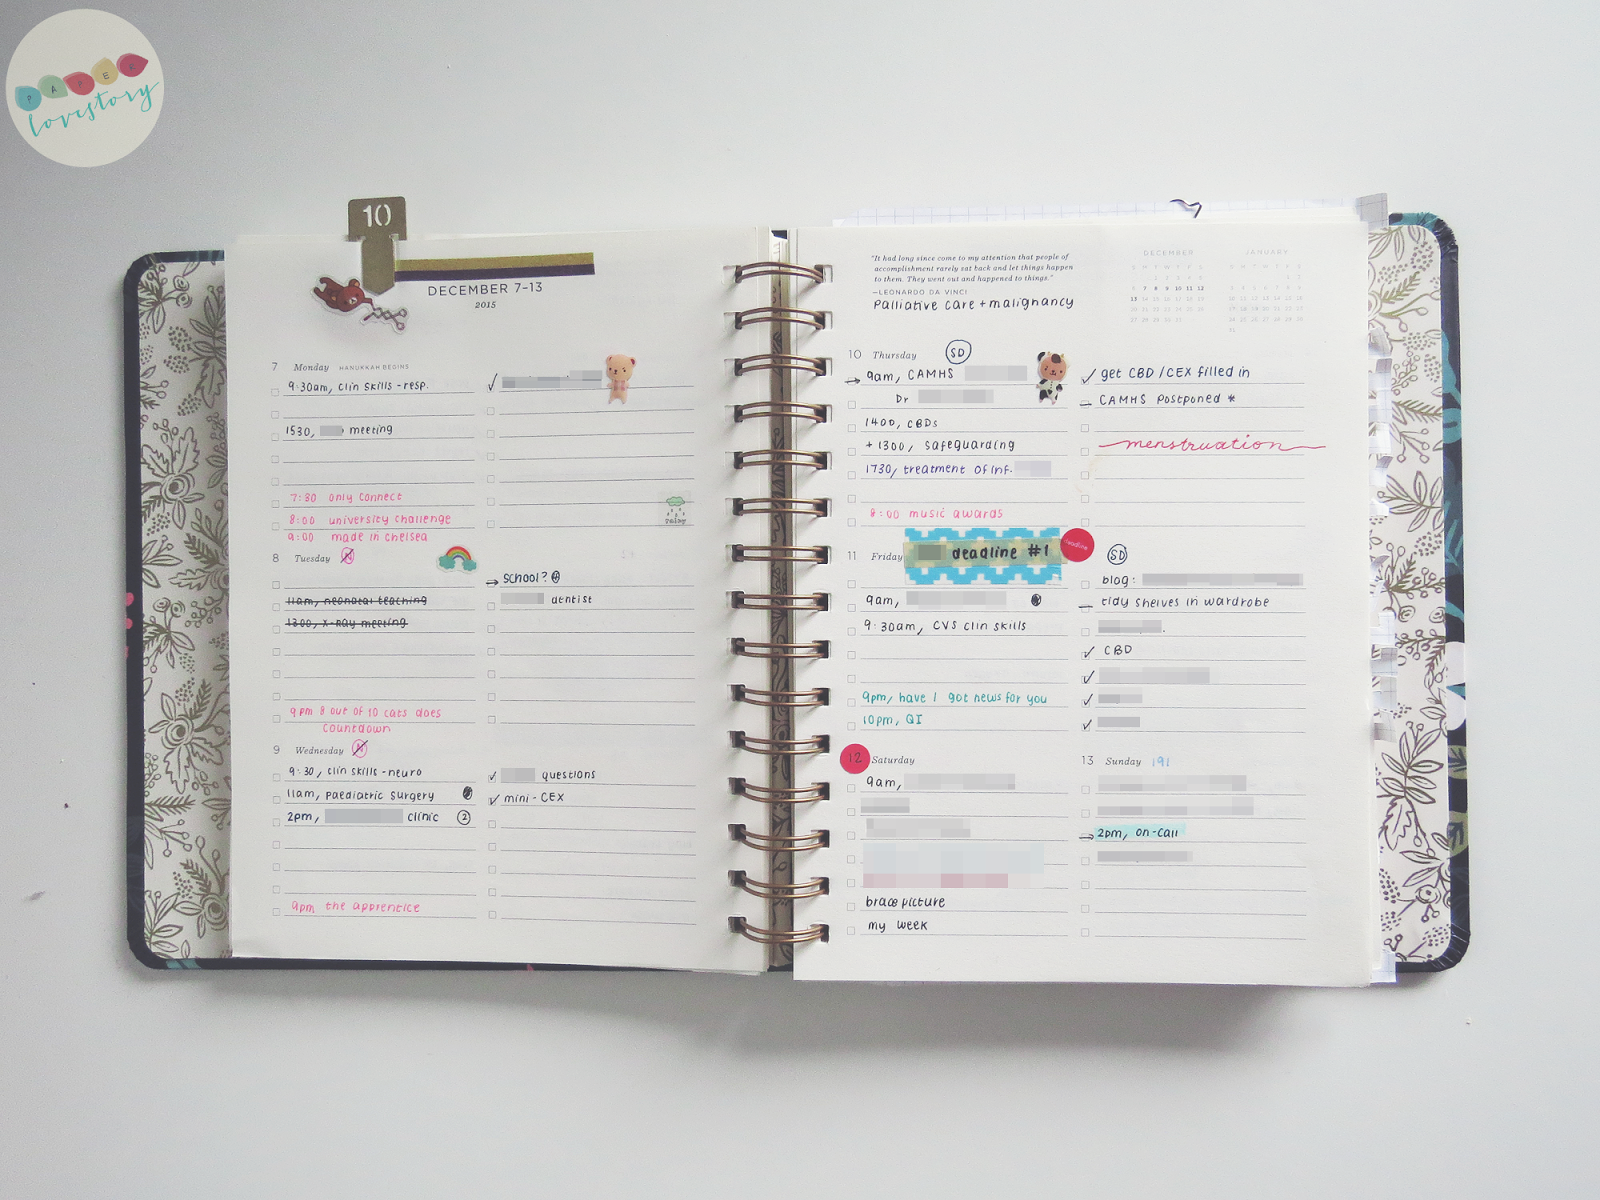 PAPER
lovestory
10
DECEMBER 7-13
2015
7 Monday HANUKKAH BEGINS
9:30am, clin skills - resp.
1530, meeting
7:30 only connect
8:00 university challenge
9:00 made in chelsea
rainy
8 Tuesday N
11am, neonatal teaching
1300, x-ray meeting
9pm 8 out of 10 cats does
countdown
school?
dentist
9 Wednesday N
9:30, clin skills - neuro
11am, paediatric surgery
2pm, clinic 2
9pm the apprentice
questions
mini-CEX
"It had long since come to my attention that people of
accomplishment rarely sat back and let things happen
to them. They went out and happened to things."
—LEONARDO DA VINCI
Palliative care + malignancy
DECEMBER
JANUARY
10 Thursday SD
9am, CAMHS
Dr
1400, CBDs
+ 1300, safeguarding
1730, treatment of inf.
8:00 music awards
get CBD/CEX filled in
CAMHS postponed *
menstruation
11 Friday
deadline #1
deadline
SD
9am,
9:30am, CVS clin skills
9pm, have I got news for you
10pm, QI
blog:
tidy shelves in wardrobe
CBD
12 Saturday
9am,
brace picture
my week
13 Sunday 191
2pm, on-call